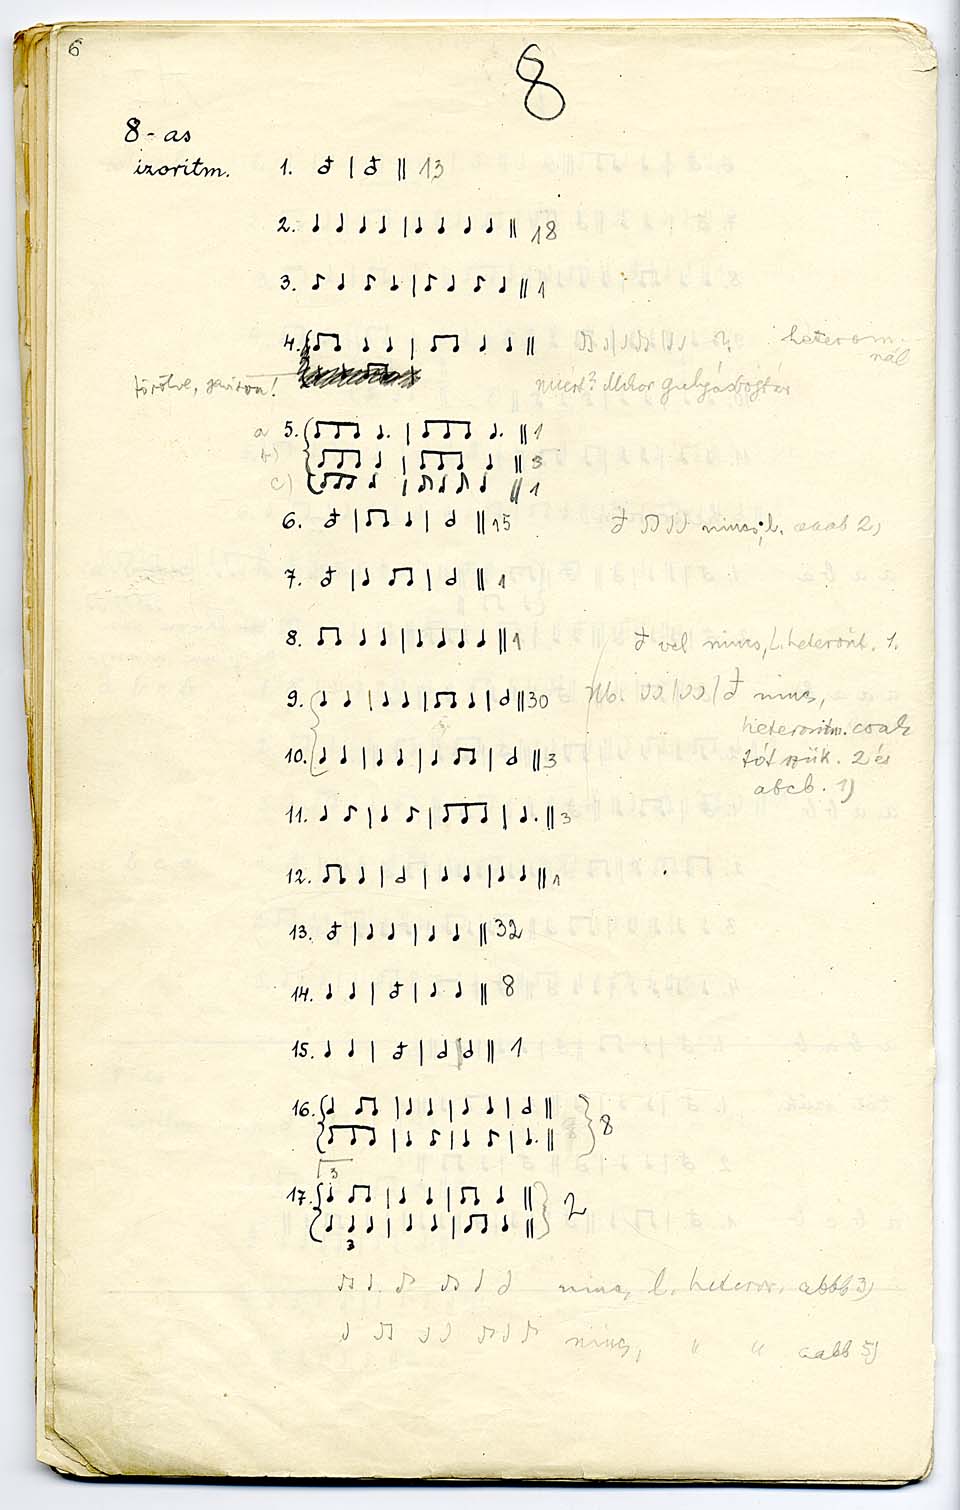 6
8
8-as
izoritm.
1. 13
2. 18
3. 1
4.
heterom-
nál
törölve, javítva!
miért? Mikor
a 5. 1
b) 3
c) 1
6. 15
nincs, l. aaab 2)
7. 1
8. 1
vel nincs, l. heterorit. 1.
9. 30
Nb. nincs,
heteroritm. csak
10. 3
tót szűk. 2 és
abcb. 1)
11. 3
12. 1
13. 32
14. 8
15. 1
16. 8
3
17. 2
3
nincs, l. heteror. abbb 3)
nincs, " " aabb 5)